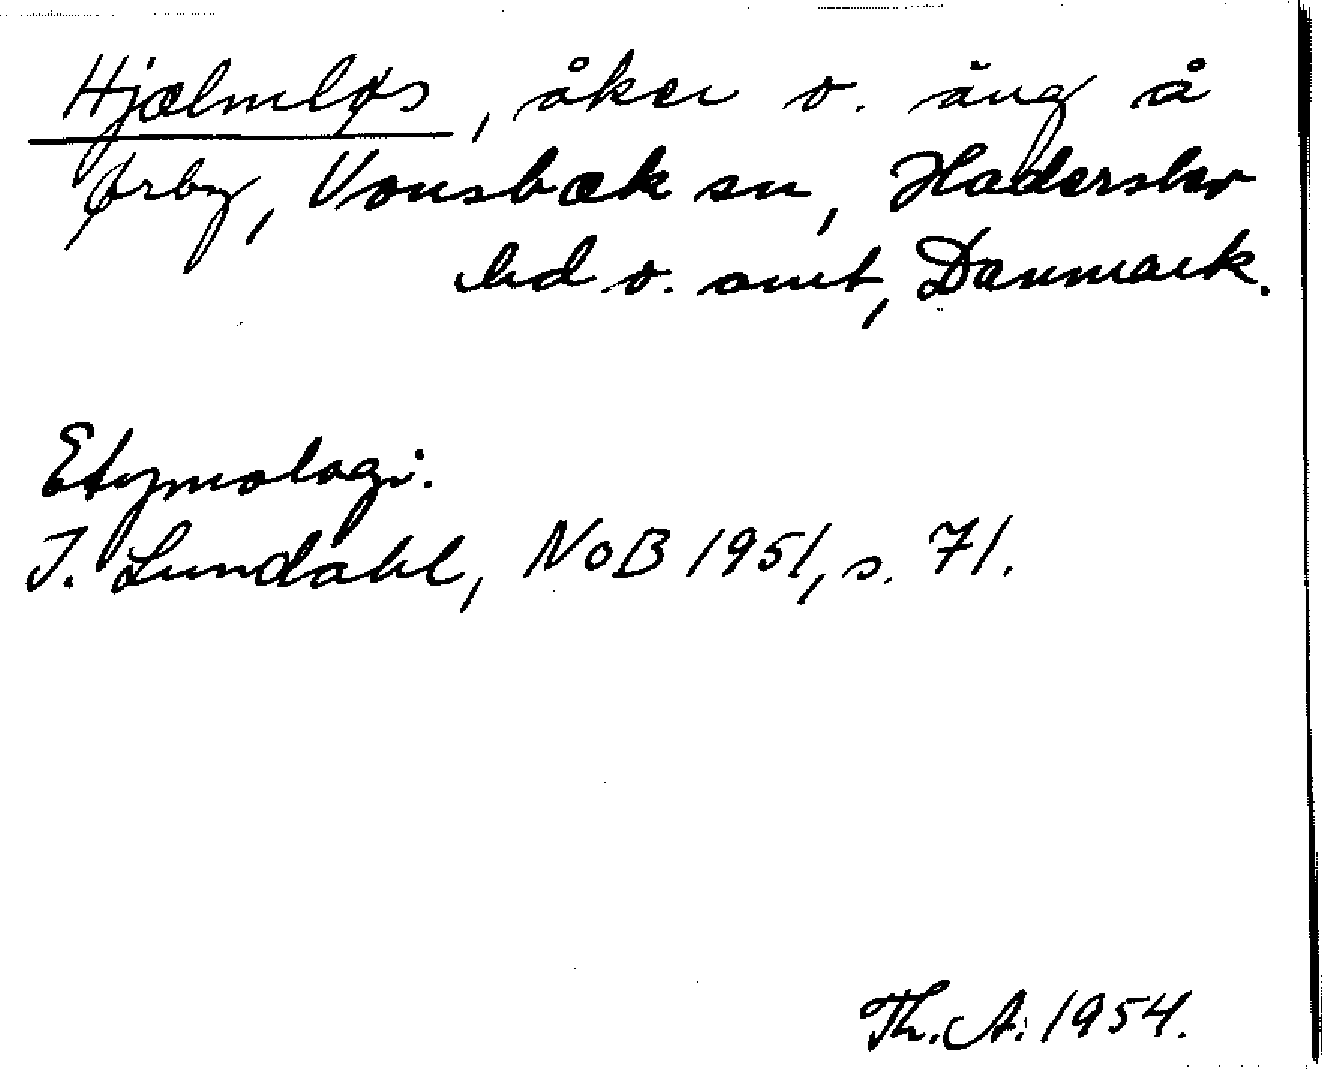 Hjælmløs, åker o. äng å
Ørby, Vonsbæk sn, Haderslev
hd o. amt, Danmark.
Etymologi.
I. Lundahl, NoB 1951, s. 71.
Th. A. 1954.